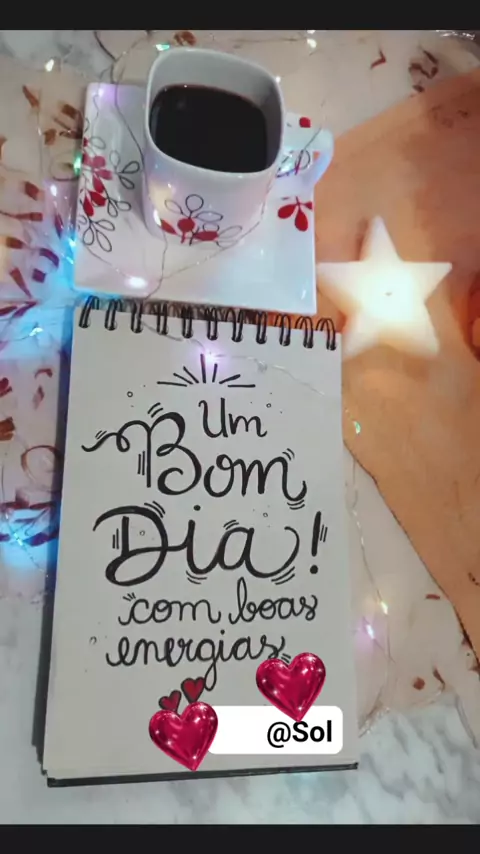 Um
Bom
Dia!
com boas
energias
@Sol